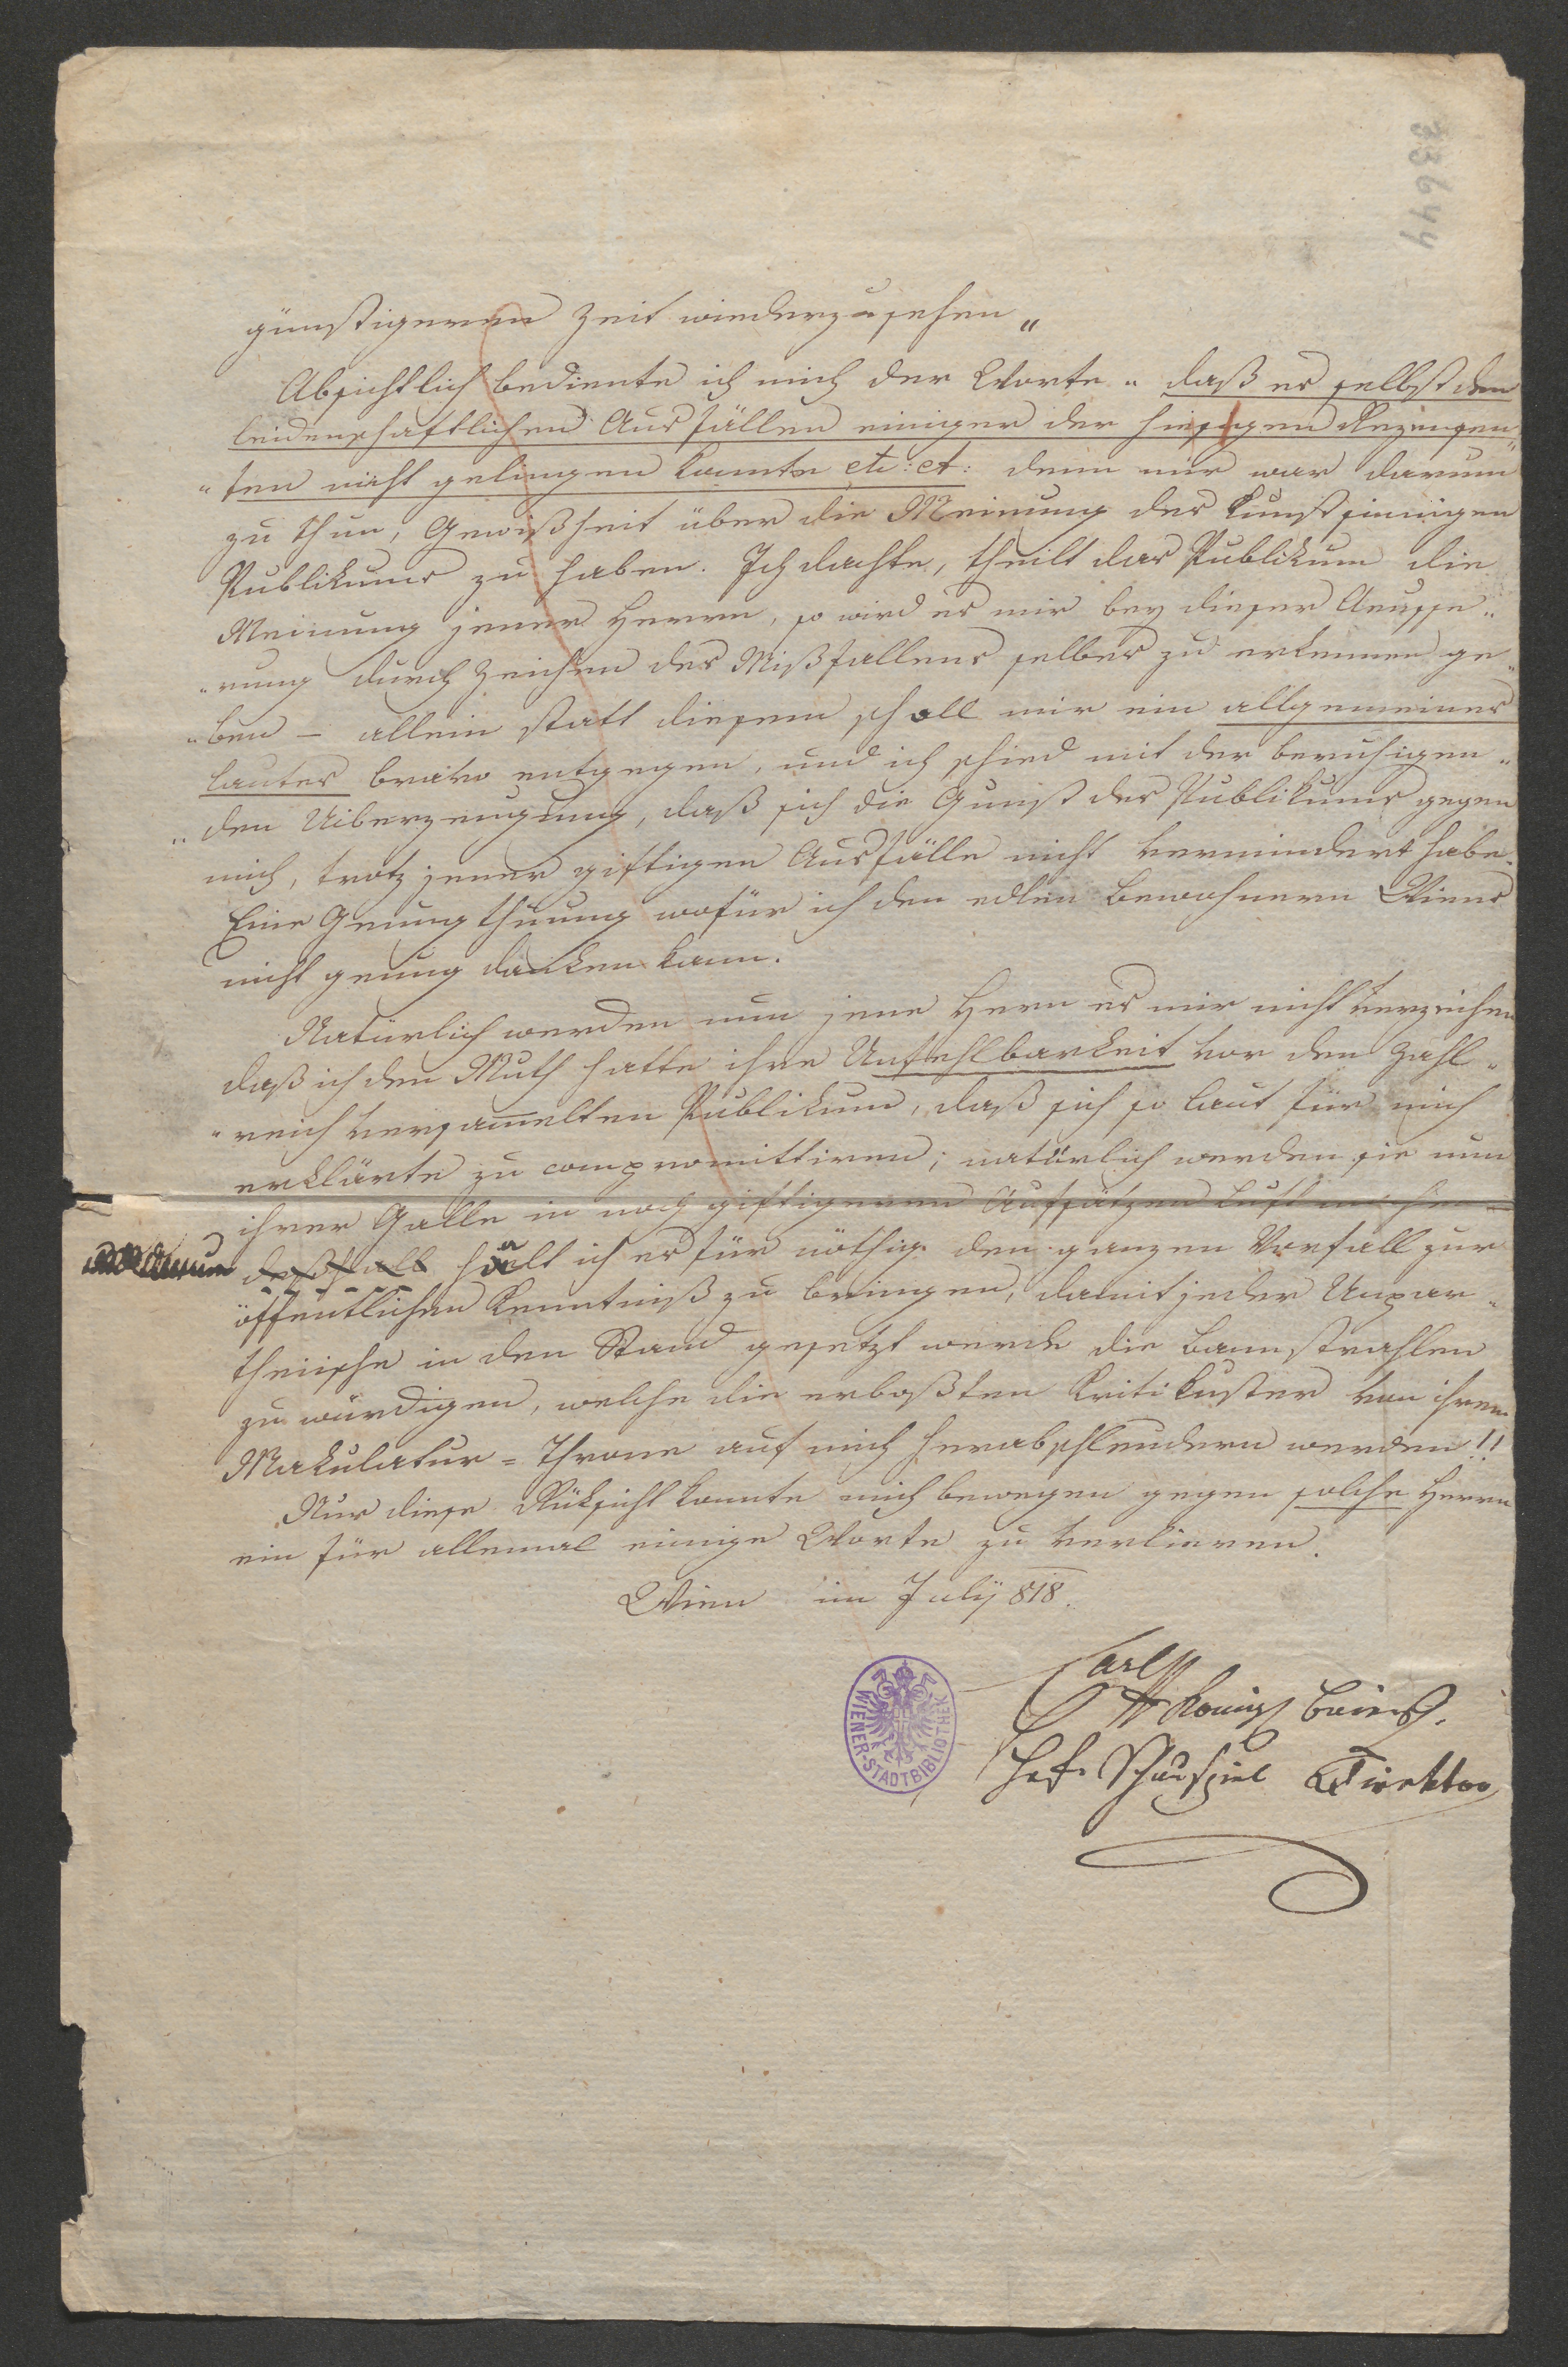 33644
günstigeren Zeit wiederzusehen„
Absichtlich bediente ich mich der Worte „daß es selbst den
leidenschaftlichen Ausfällen einiger der hiesigen Rezensen„
„ten nicht gelingen konnte etc: et: denn mir war darum
zu thun, Gewißheit über die Meinung des kunstsinnigen
Publikums zu haben. Ich dachte, theilt das Publikum die
Meinung jener Herren, so wird es mir bey dieser Aeusse„
„rung durch Zeichen des Mißfallens selbes zu erkennen ge„
„ben – allein statt diesem scholl mir ein allgemeines
lautes bravo entgegen, und ich schied mit der beruhigen„
„den Uiberzeugung, daß sich die Gunst des Publikums gegen
mich, trotz jener giftigen Ausfälle nicht vermindert habe.
Eine Genugthuung wofür ich den edlen Bewohnern Wiens
nicht genug danken kann.
Natürlich werden nun jene Herrn es mir nicht verzeihen
daß ich den Muth hatte ihre Unfehlbarkeit vor dem zahl„
„reich versammelten Publikum, daß sich so laut für mich
erklärte zu compromittiren; natürlich werden sie nun
ihrer Galle in noch giftigeren Aufsätzen Luft machen
darum deßhalb halt ich es für nöthig den ganzen Vorfall zur
öffentlichen Kenntniß zu bringen, damit jeder Unpar„
theiische in den Stand gesetzt werde die Bannstrahlen
zu würdigen, welche die erboßten Kritikuster von ihrem
Makulatur=Throne auf mich herabschleudern werden!!
Nur diese Rüksicht konnte mich bewegen gegen solche Herrn
ein für allemal einige Worte zu verlieren.
Wien im July 818.
Carl
Königl baiers.
Hof. Schauspiel Direktor
WIENER-STADTBIBLIOTHEK